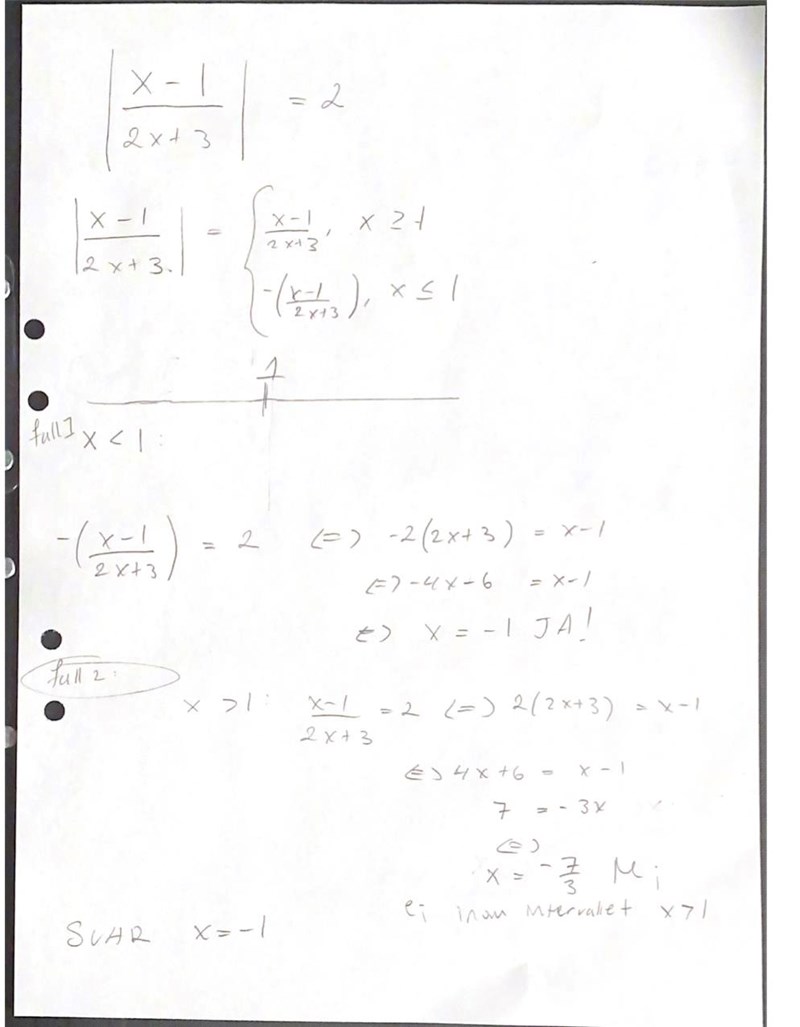 |(x-1)/(2x+3)| = 2
|(x-1)/(2x+3.)| = { (x-1)/(2x+3), x ≥ 1
-((x-1)/(2x+3)), x ≤ 1
1
fall 1 x < 1:
-((x-1)/(2x+3)) = 2 (=) -2(2x+3) = x-1
(=) -4x-6 = x-1
(=) x = -1 JA!
fall 2:
x > 1: (x-1)/(2x+3) = 2 (=) 2(2x+3) = x-1
(=) 4x+6 = x-1
7 = -3x
(=)
x = -7/3
ej inom intervallet x > 1
SVAR x = -1